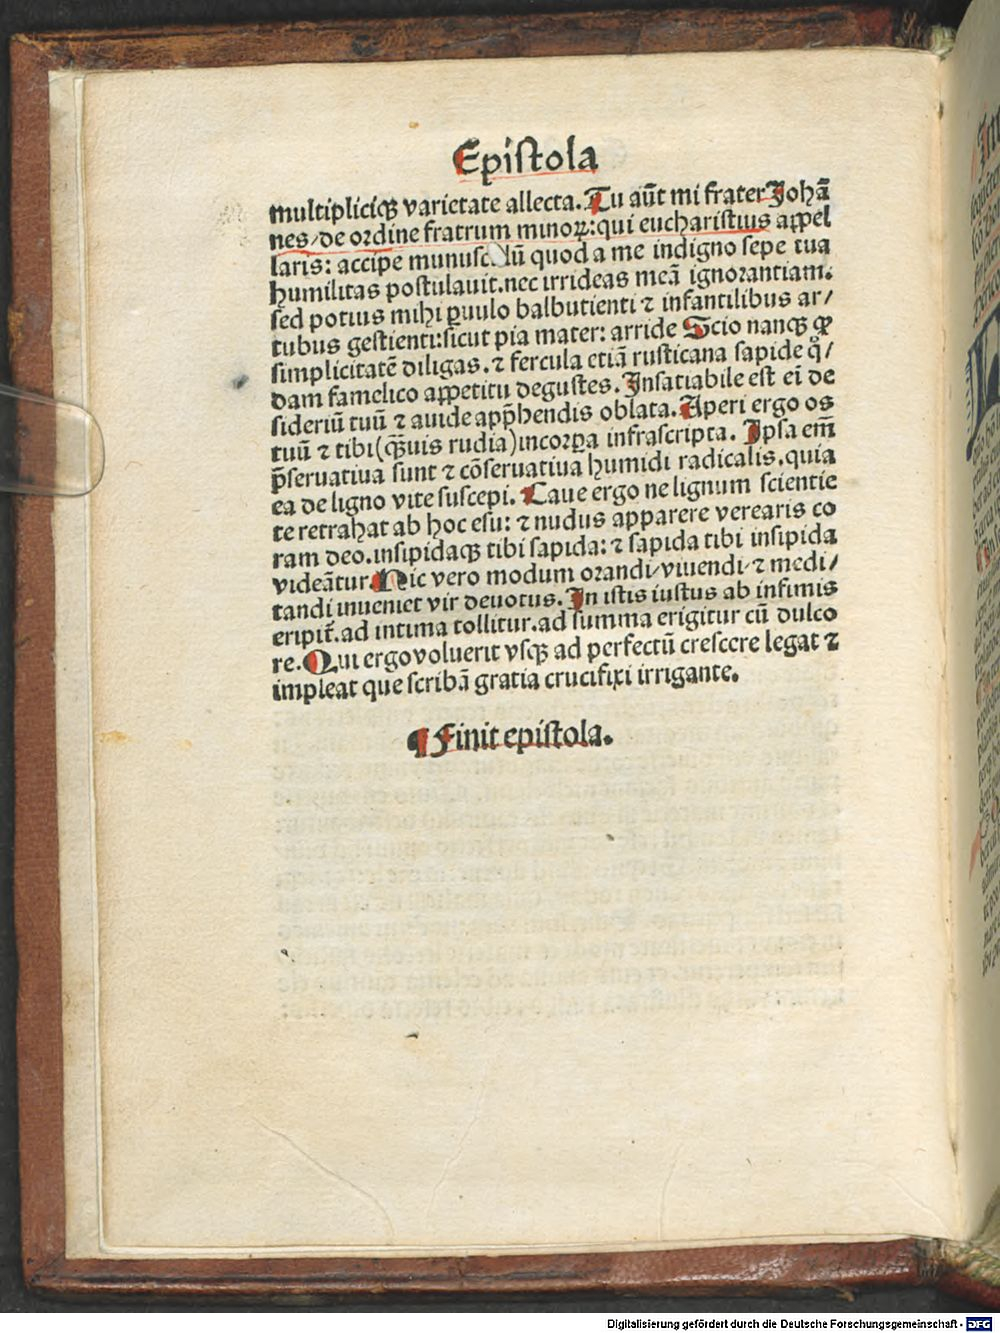 Epistola
multipliciqꝫ varietate allecta. Tu aūt mi frater Johā
nes/de ordine fratrum minoꝝ:qui eucharistius appel
laris: accipe munusc lū quod a me indigno sepe tua
humilitas postulauit.nec irrideas meā ignorantiam.
sed potius mihi ꝑuulo balbutienti ⁊ infantilibus ar/
tubus gestienti:sicut pia mater: arride Scio nanqꝫ ꝙ
simplicitatē diligas. ⁊ fercula etiā rusticana sapide q̄/
dam famelico appetitu degustes. Insatiabile est ei̅ de
sideriū tuū ⁊ auide app̄hendis oblata. Aperi ergo os
tuū ⁊ tibi(qꝫuis rudia)incorꝑa infrascripta. Ipsa em̄
p̄seruatiua sunt ⁊ cōseruatiua humidi radicalis.quia
ea de ligno vite suscepi. Caue ergo ne lignum scientie
te retrahat ab hoc esu: ⁊ nudus apparere verearis co
ram deo.insipidaqꝫ tibi sapida: ⁊ sapida tibi insipida
videātur. Hic vero modum orandi/viuendi/⁊ medi/
tandi inueniet vir deuotus. In istis iustus ab infimis
eripit̄.ad intima tollitur.ad summa erigitur cū dulco
re. Qui ergo voluerit vsqꝫ ad perfectū crescere legat ⁊
impleat que scribā gratia crucifixi irrigante.
¶ Finit epistola.
Digitalisierung gefördert durch die Deutsche Forschungsgemeinschaft - DFG